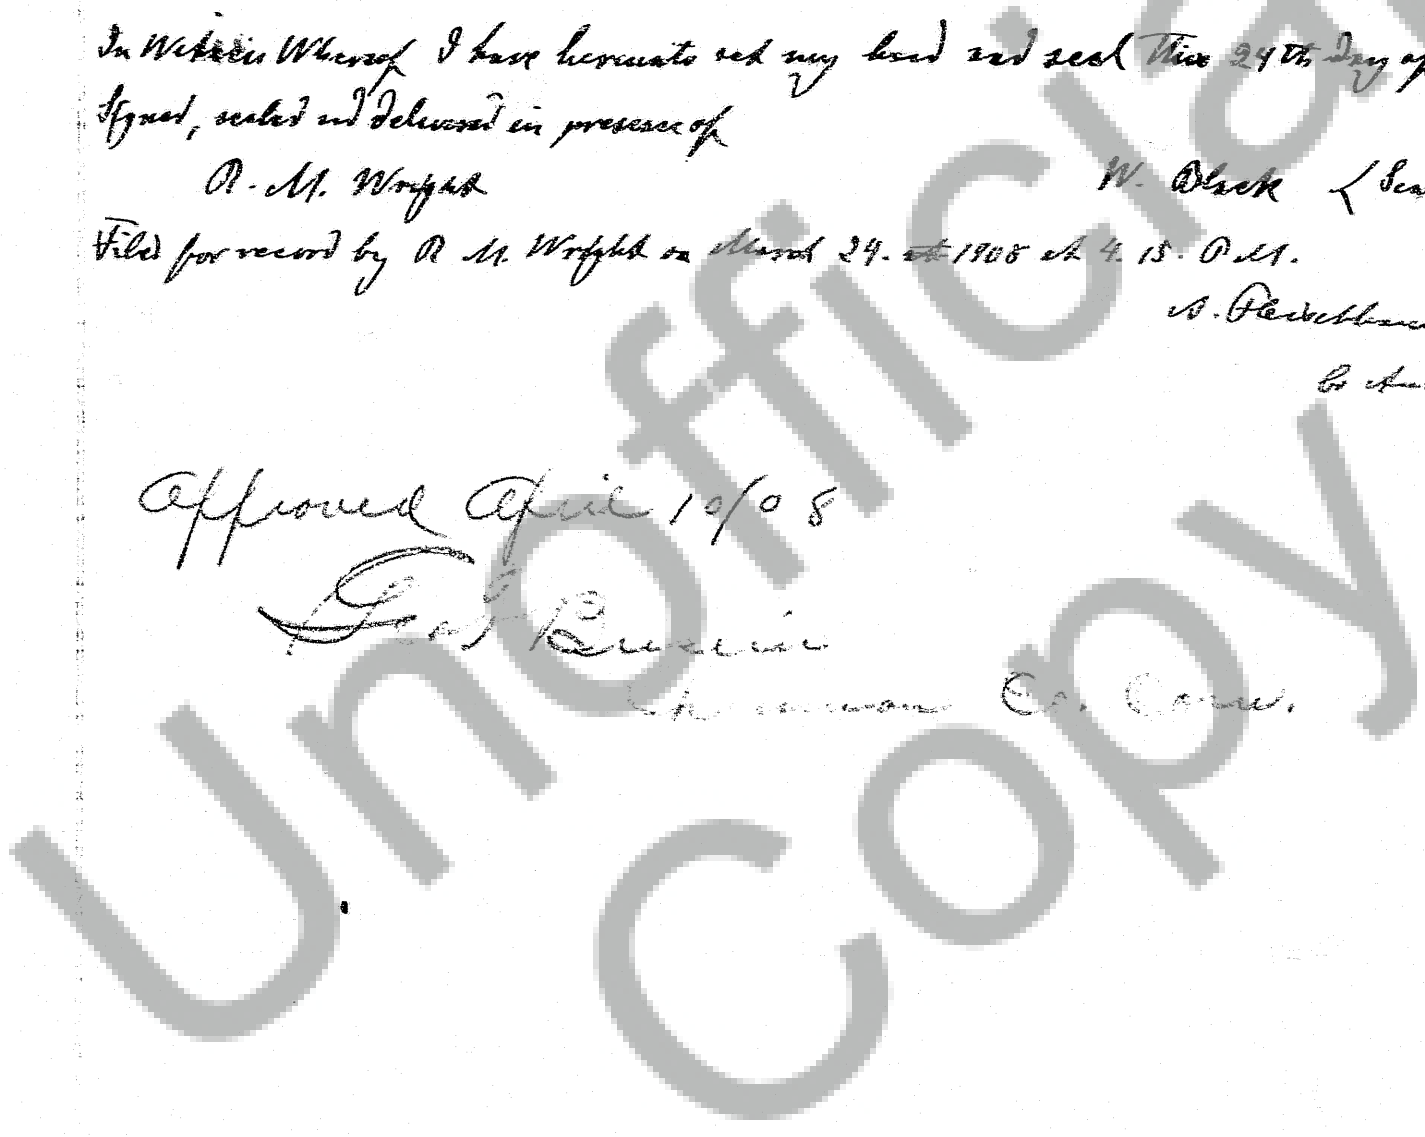 In Witness Whereof I have hereunto set my hand and seal This 24th day of
Signed, sealed and delivered in presence of
R. M. Wright
W. Black { Sea
Filed for record by R. M. Wright on March 24. 1908 at 4.15. P.M.
A.
Co Au
Approved April 10/08
Geo
Chairman Co. Com.
Unofficial
Copy